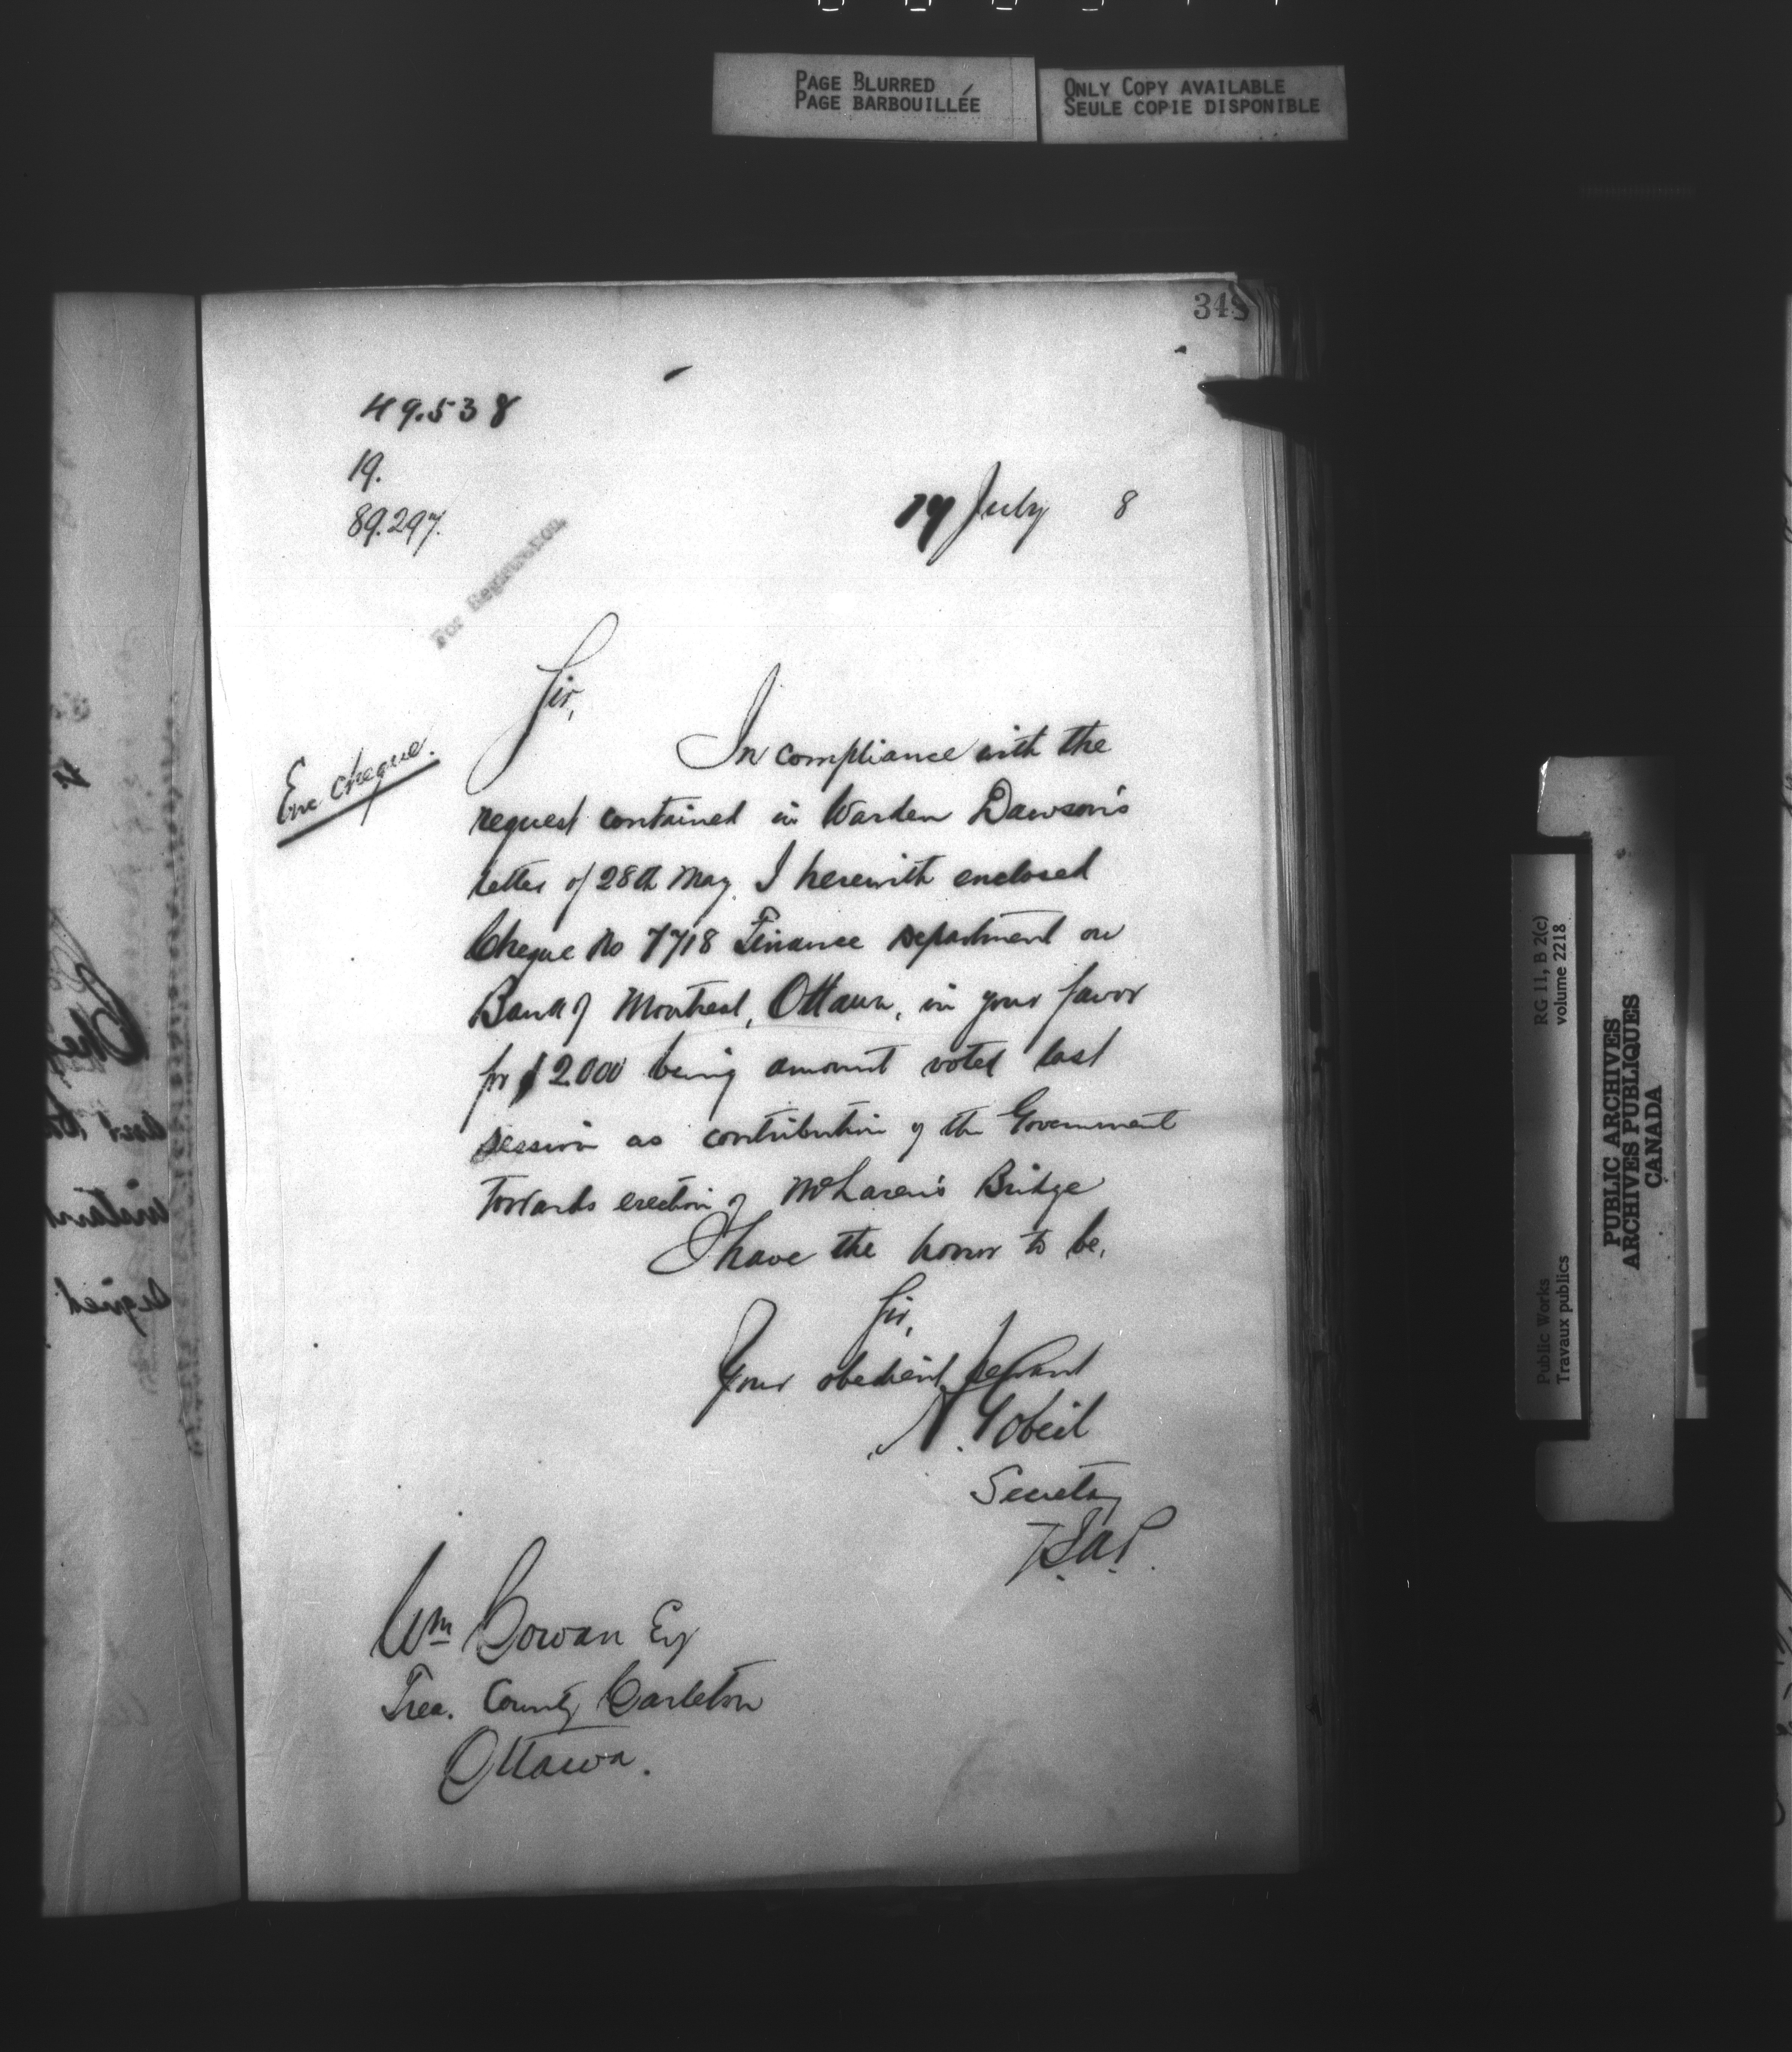 PAGE BLURRED
PAGE BARBOUILLÉE
ONLY COPY AVAILABLE
SEULE COPIE DISPONIBLE
348
49.538
19.
89.297.
17 July 8
For Registration
Sir,
Enc cheque.
In compliance with the
request contained in Warden Dawson's
letter of 28th May. I herewith enclosed
Cheque No 7718 Finance Department on
Bank of Montreal, Ottawa, in your favor
for $2000 being amount voted last
session as contribution of the Government
towards erection of McLaren's Bridge
I have the honor to be,
Sir,
Your obedient servant
A. Gobeil
Secretary
Wm Cowan Esq
Trea. County Carleton
Ottawa.
RG 11, B 2(c)
volume 2218
Public Works
Travaux publics
PUBLIC ARCHIVES
ARCHIVES PUBLIQUES
CANADA